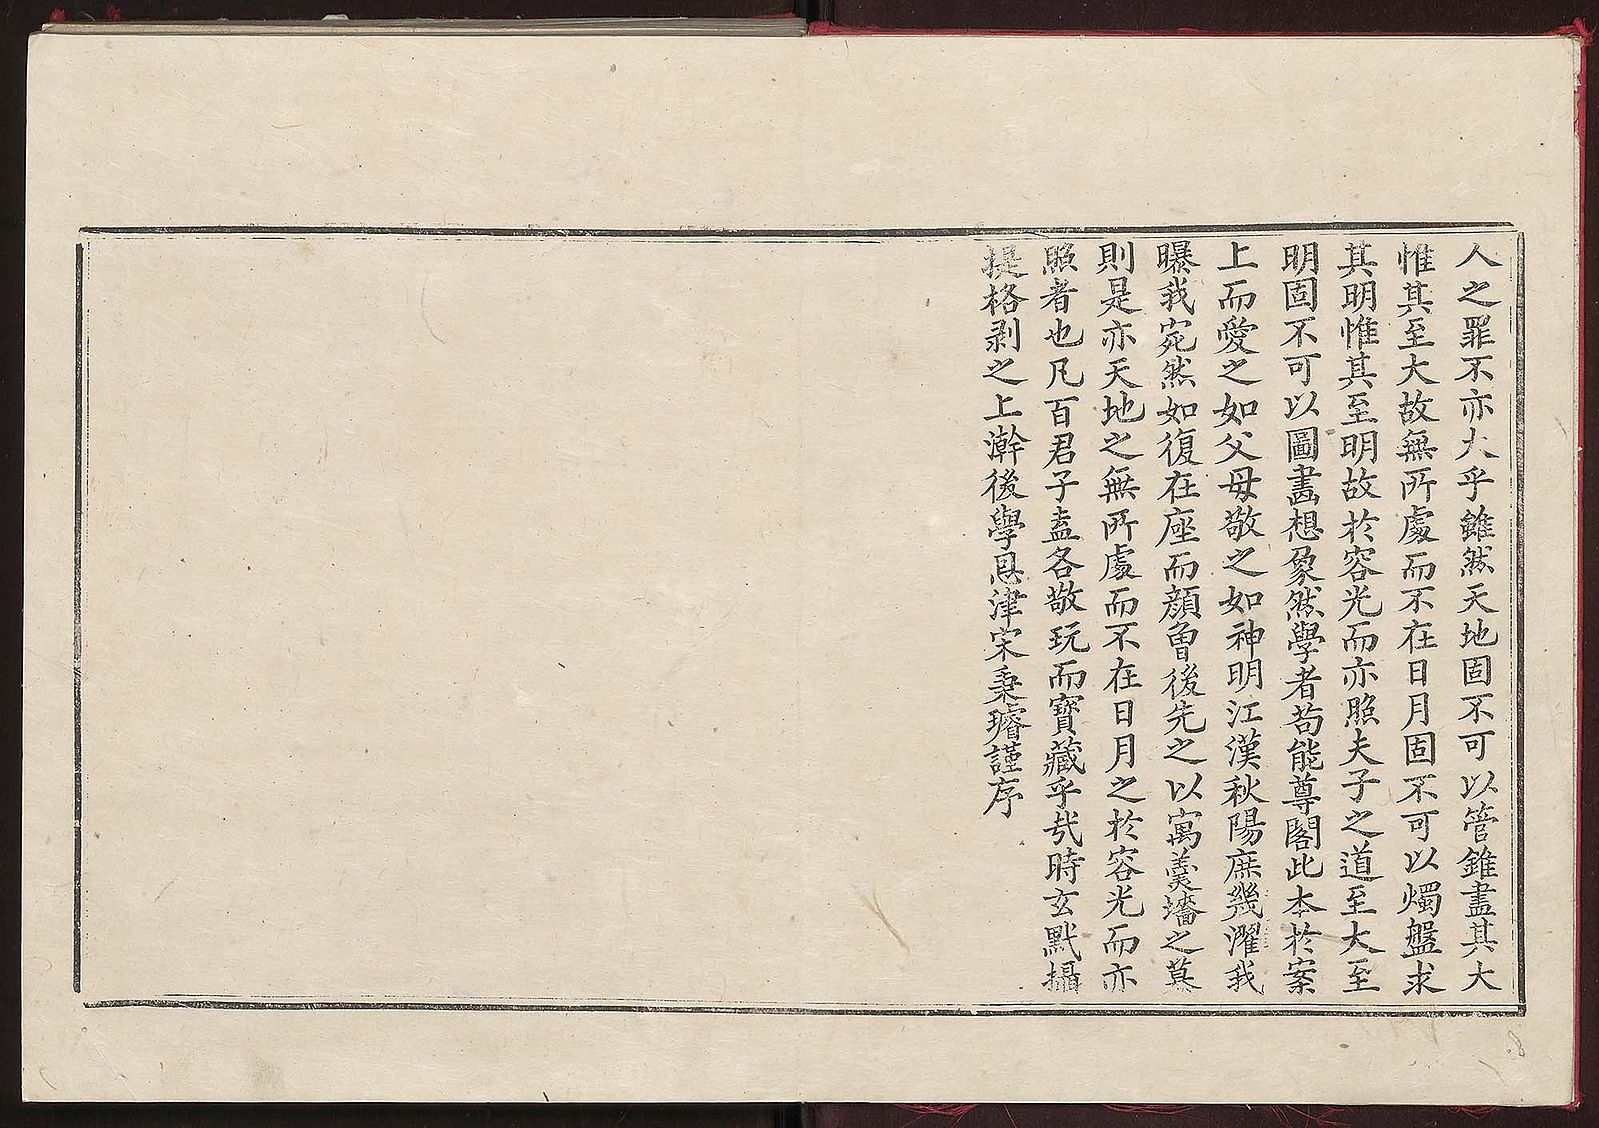 人之罪不亦大乎雖然天地固不可以管錐盡其大
惟其至大故無所處而不在日月固不可以燭盤求
其明惟其至明故於容光而亦照夫子之道至大至
明固不可以圖畵想象然學者苟能尊閣此本於案
上而愛之如父母敬之如神明江漢秋陽庶幾濯我
曝我宛然如復在座而顔曾後先之以寓羹墻之慕
則是亦天地之無所處而不在日月之於容光而亦
照者也凡百君子盍各敬玩而寶藏乎哉時玄黓攝
提格剥之上澣後學恩津宋秉璿謹序